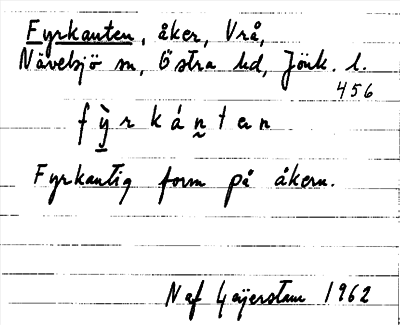 Fyrkanten, åker, Vrå,
Nävelsjö sn, Östra hd, Jönk. l.
456
fỳ̠rkán̰tan
Fyrkantig form på åkern.
Naf Geijerstam 1962